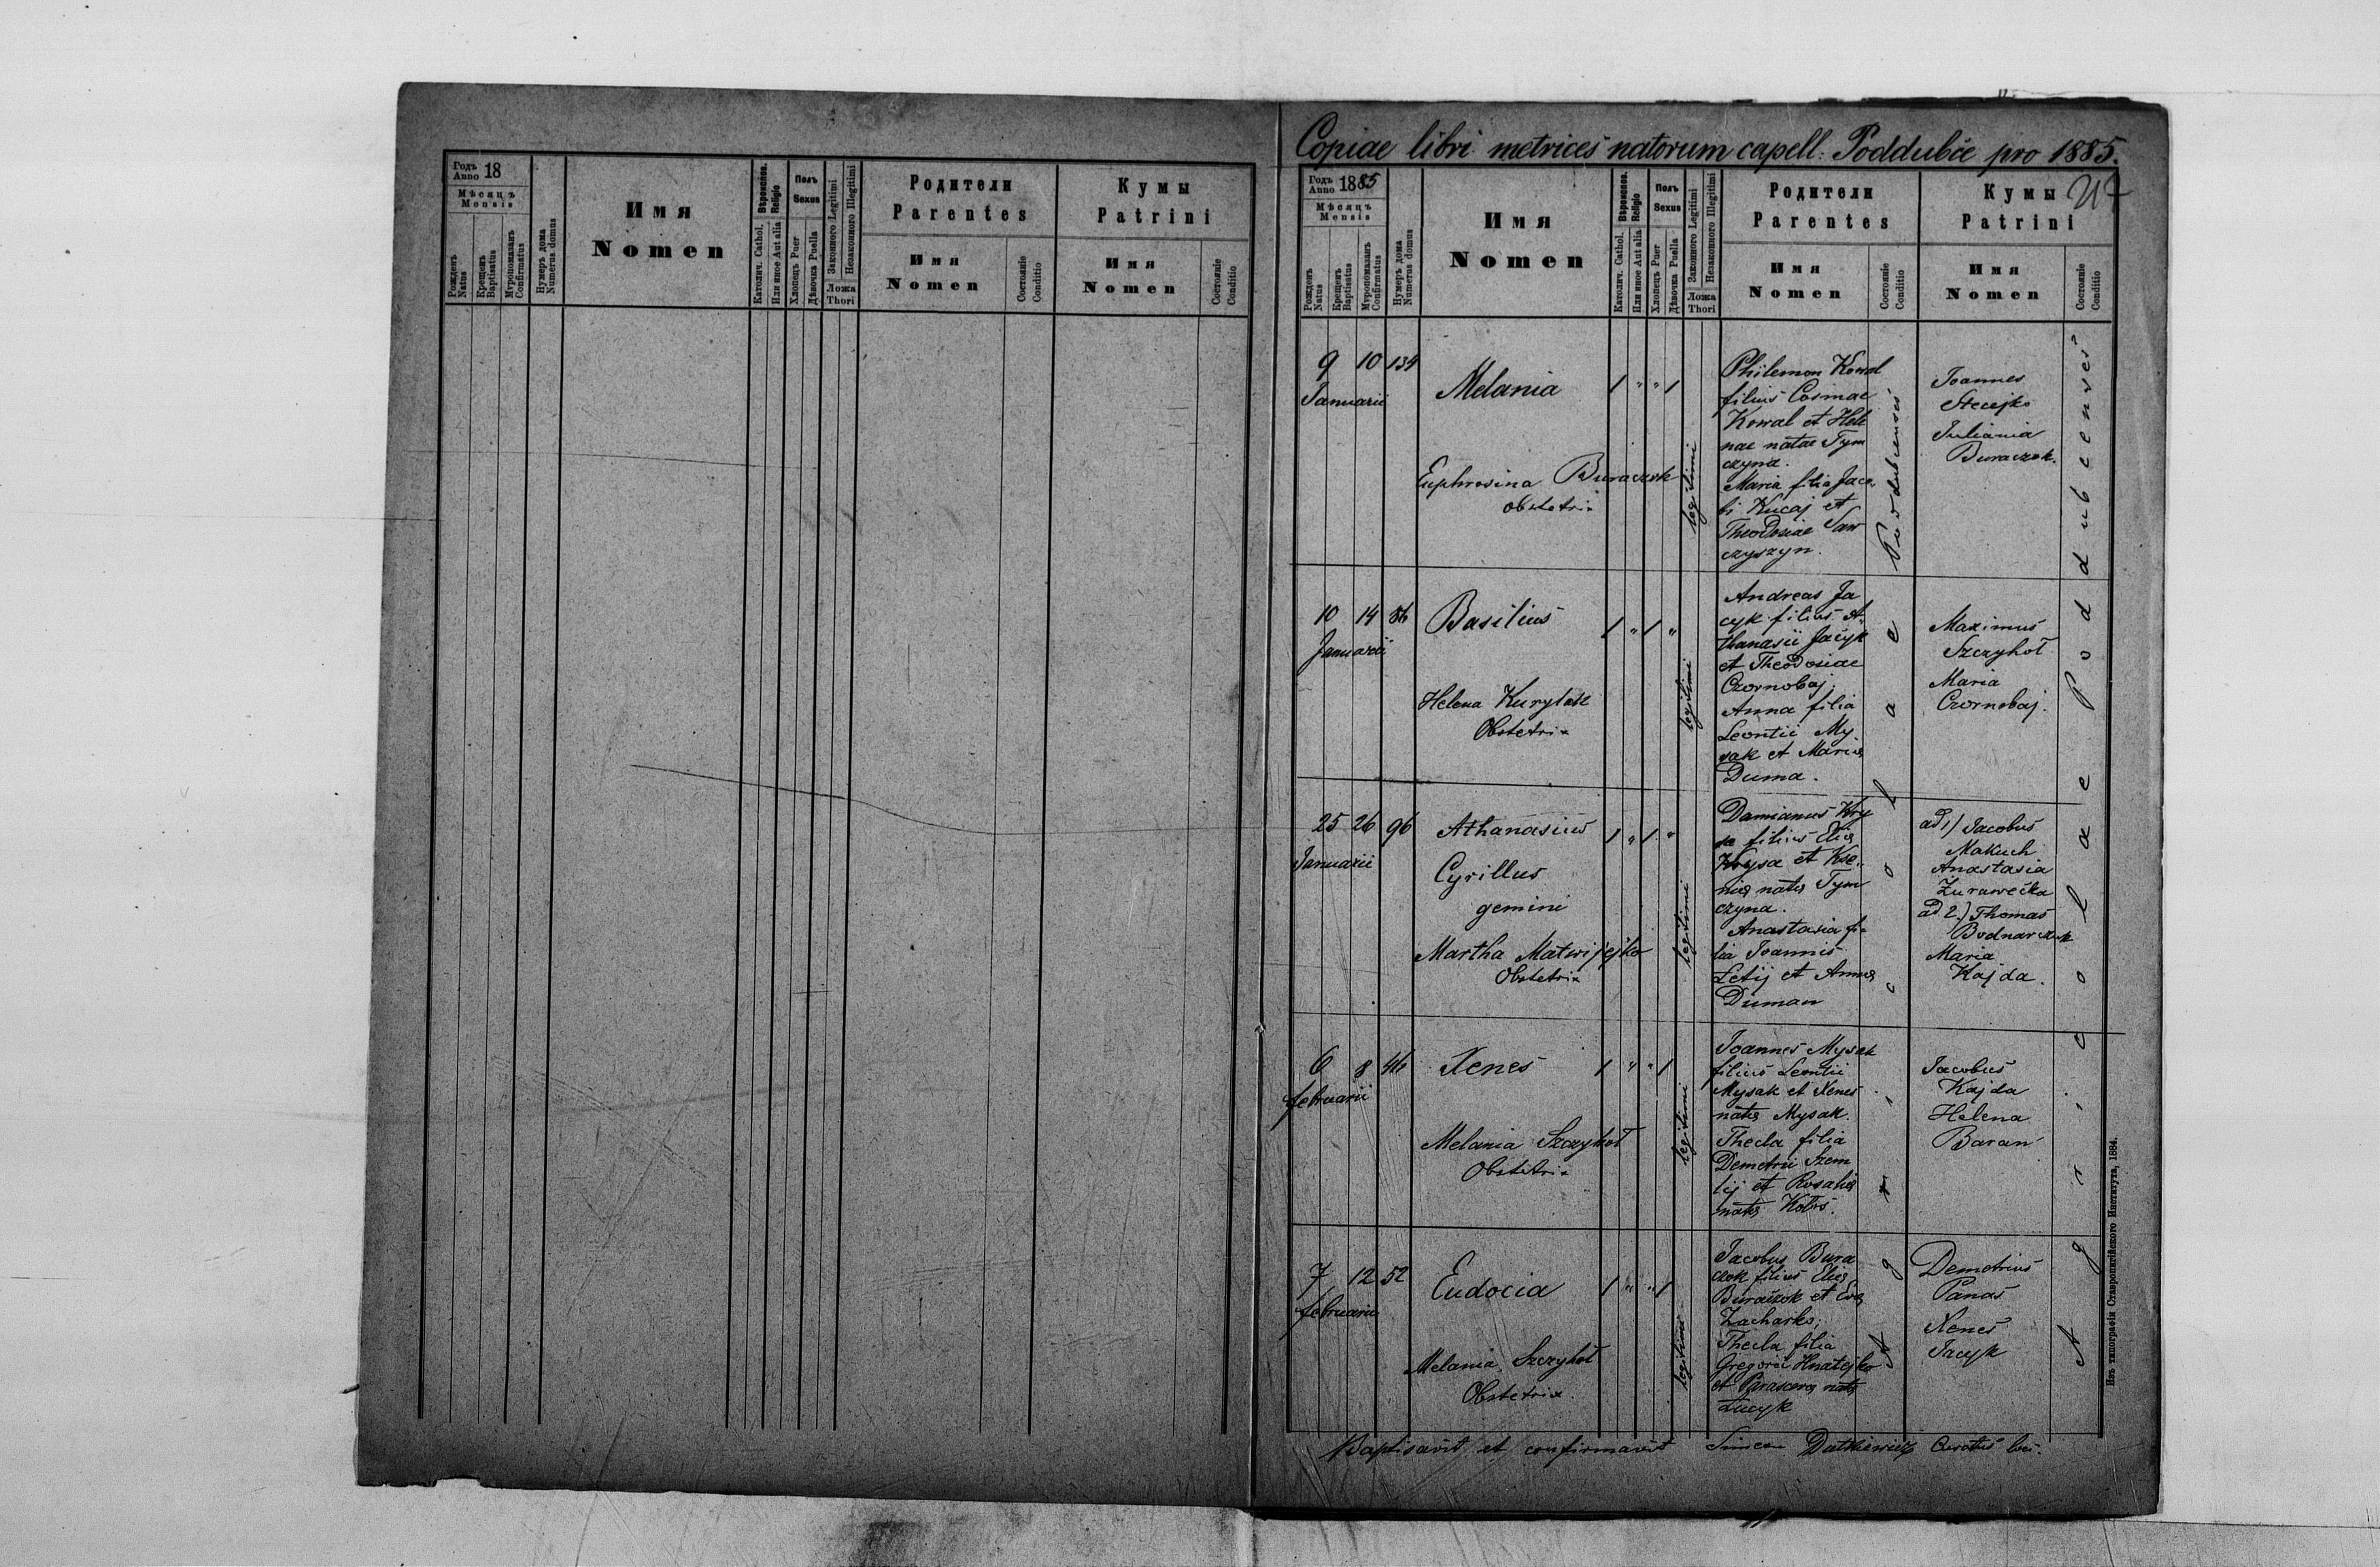 Годъ
Anno 18
Мѣсяцъ
Mensis
Рожденъ
Natus
Крещенъ
Baptisatus
Муропомазанъ
Confirmatus
Нумеръ дома
Numerus domus
Имя
Nomen
Вѣроиспов.
Religio
Католич. Cathol.
Или иное Aut alia
Полъ
Sexus
Хлопець Puer
Дѣвочка Puella
Законного Legitimi
Незаконного Illegitimi
Ложа
Thori
Родители
Parentes
Имя
Nomen
Состояніе
Conditio
Кумы
Patrini
Имя
Nomen
Состояніе
Conditio
Copiae libri metrices natorum capell: Poddubie pro 1885.
Годъ
Anno 1885
Мѣсяцъ
Mensis
Рожденъ
Natus
Крещенъ
Baptisatus
Муропомазанъ
Confirmatus
Нумеръ дома
Numerus domus
Имя
Nomen
Вѣроиспов.
Religio
Католич. Cathol.
Или иное Aut alia
Полъ
Sexus
Хлопець Puer
Дѣвочка Puella
Законного Legitimi
Незаконного Illegitimi
Ложа
Thori
Родители
Parentes
Имя
Nomen
Состояніе
Conditio
Кумы
Patrini
Имя
Nomen
Состояніе
Conditio
9 10 134
Januarii
Melania
1 " " 1
Euphrosina Buraczok
Obstetrix
legitimi
Philemon Kowal
filius Cosmae
Kowal et Hele
nae natae Tym
czyna.
Maria filia Jaco
bi Kucaj et
Theodosiae Saw
czyszyn.
Joannes
Stecejko
Juliania
Buraczok.
10 14 86
Januarii
Basilius
1 " 1 "
Helena Kurylak
Obstetrix
legitimi
Andreas Ja
cyk filius A
thanasii Jacyk
et Theodosiae
Czornobaj;
Anna filia
Leontii My
sak et Mariae
Duma.
Maximus
Szczyhoł
Maria
Czornobaj.
25 26 96
Januarii
Athanasius
Cyrillus
gemini
1 " 1 "
Martha Matwijejko
Obstetrix
legitimi
Damianus Kry
sa filius Eliae
Krysa et Kse
niae natae Tym
czyna.
Anastasia fi
lia Joannis
Letij et Annae
Duman
ad 1) Jacobus
Makuch
Anastasia
Żurawecka
ad 2.) Thomas
Bodnarczuk
Maria
Kajda.
6 8 46
februarii
Xenes
1 " " 1
Melania Szczyhoł
Obstetrix
legitimi
Joannes Mysak
filius Leontii
Mysak et Xenes
natae Mysak.
Thecla filia
Demetrii Szem
lij et Rosaliae
natae Kotis.
Jacobus
Kajda
Helena
Baran
7 12 52
februarii
Eudocia
1 " " 1
Melania Szczyhoł
Obstetrix.
legitimi
Jacobus Bura
czok filius Eliae
Buraczok et Evae
Zacharko;
Thecla filia
Gregorii Hnatejko
et Parascevae natae
Łucyk
Demetrius
Panas
Xenes
Jacyk
Agricolae Poddubenses
Agricolae Poddubenses
Baptisavit et confirmavit Simeon Dutkiewicz Curatus loci.
Изъ типографіи Ставропигійского Института, 1884.